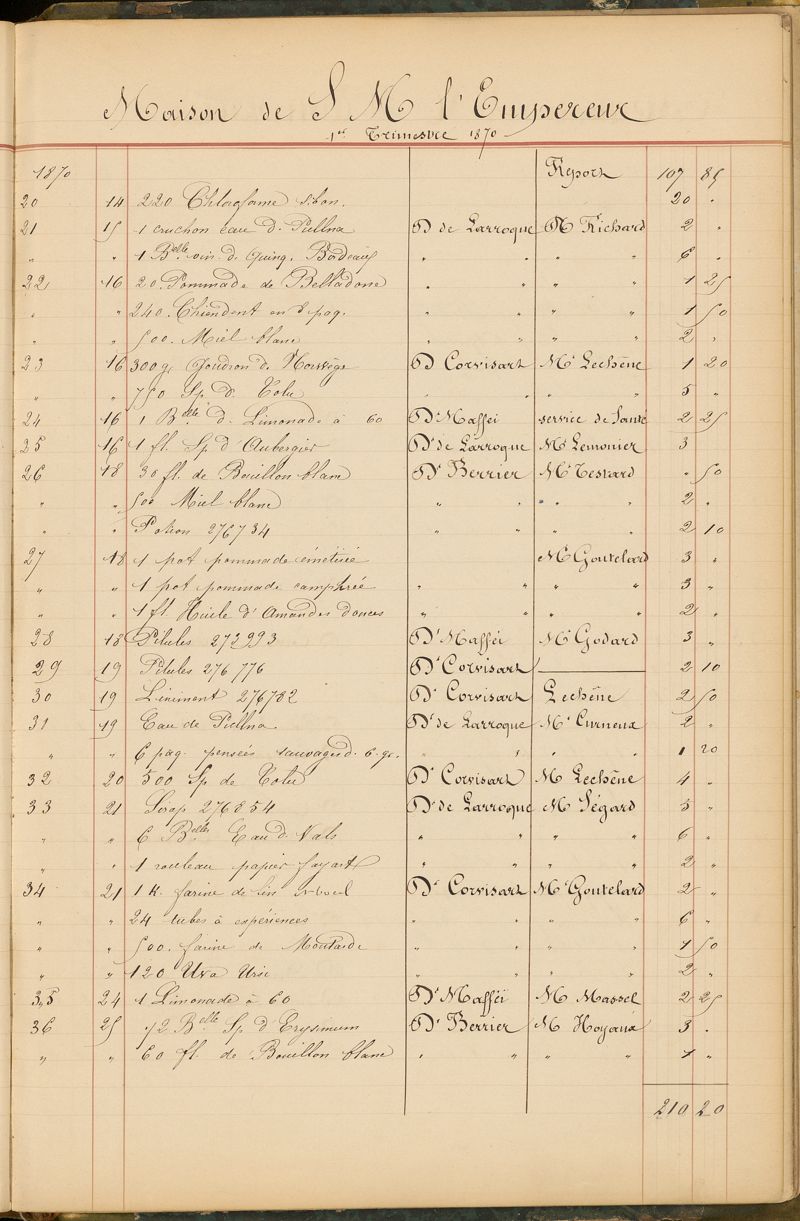 Maison de S M l'Empereur
1er Trimestre 1870
1870 Report 107 85
20 14 220 Chloroforme 20 "
21 15 1 cruchon eau d. Pullna D de Larroque M Richard 2 "
" " 1 Blle vin d. Quinq. Bordeaux " " " " 6 "
22 16 20. Pommade de Belladone " " " " 1 25
" " 240. Chiendent en 8 paq. " " " " 1 50
" " 500. Miel blanc " " " " 2 "
23 16 300 g. Goudron d. Norvège D Corvisart Mr Lechêne 1 20
" " 750 Sp. d. Tolu " " " " 5 "
24 16 1 Blle d. Limonade à 60 Dr Maffei service de Santé 2 25
25 16 1 fl. Sp d'Aubergier Dr de Larroque Mr Lemonier 3
26 18 30 fl. de Bouillon blanc Dr Berrier Mr Testard " 50
" " 500 Miel blanc " " " " 2 "
" " Potion 276734 " " " " 2 10
27 18 1 pot pommade émétisée Mr Goutelard 3 "
" " 1 pot pommade camphrée " " " " 3 "
" " 1 fl. Huile d'Amandes douces " " " " 2 "
28 18 Pilules 272993 Dr Maffëi Mr Godard 3 "
29 19 Pilules 276776 Dr Corvisart — 2 10
30 19 Liniment 276782 Dr Corvisart Lechêne 2 50
31 19 Eau de Pullna Dr de Larroque Mr Curneux 2 "
" " 6 paq. pensées sauvages d. 6 gr. " " " " 1 20
32 20 500 Sp de Tolu Dr Corvisart M Lechêne 4 "
33 21 Sirop 276854 Dr de Larroque M Ségard 3 "
" " 6 Blles Eau d. Vals " " " " 6 "
" " 1 rouleau papier fayart " " " " 2 "
34 21 1 K. farine de lin Dr Corvisart Mr Goutelard 2 "
" " 24 tubes à expériences " " " " 6 "
" " 500. farine de Moutarde " " " " 1 50
" " 120 Uva Ursi " " " " 2 "
35 24 1 Limonade à 60 Dr Maffëi M Massel 2 25
36 25 1/2 Blle Sp d'Erysimum Dr Berrier M 3 "
" " 60 fl. de Bouillon blanc " " " " 1 "
210 20